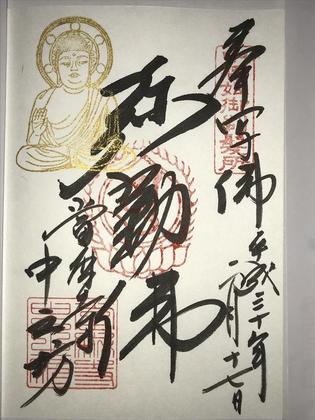 奉写佛
平成三十年
月十七日
弥勒佛
當麻寺
中之坊